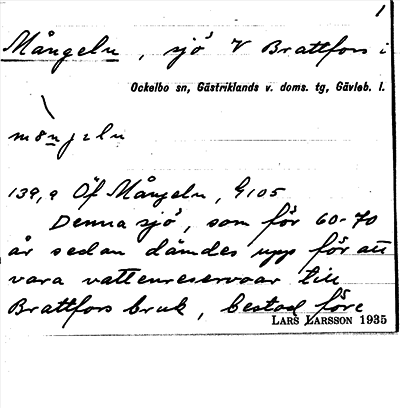 1
Mångeln, sjö V Brattfors i
Ockelbo sn, Gästriklands v. doms. tg, Gävleb. l.
139,9 Öf Mångeln, G105
Denna sjö, som för 60-70
år sedan dämdes upp för att
vara vattenreservoar till
Brattfors bruk, bestod före
LARS LARSSON 1935